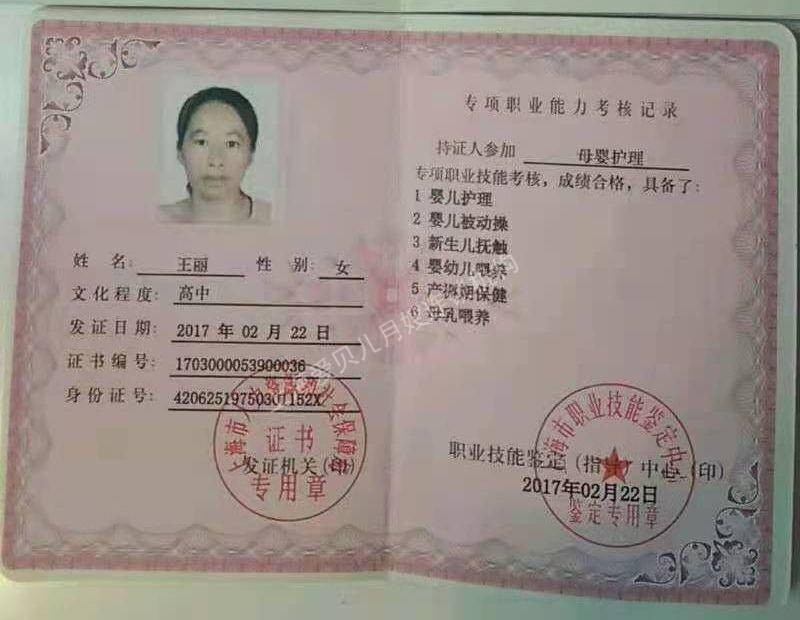 姓 名: 王丽 性 别: 女
文化程度: 高中
发证日期: 2017 年 02 月 22 日
证书编号: 1703000053900036
身份证号: 42062519750301152X
发证机关(印)
证书
专用章
专项职业能力考核记录
持证人参加 母婴护理
专项职业技能考核，成绩合格，具备了:
1 婴儿护理
2 婴儿被动操
3 新生儿抚触
4 婴幼儿喂养
5 产褥期保健
6 母乳喂养
职业技能鉴定(指导)中心(印)
2017年02月22日
上海市职业技能鉴定中心
鉴定专用章
爱贝儿月嫂